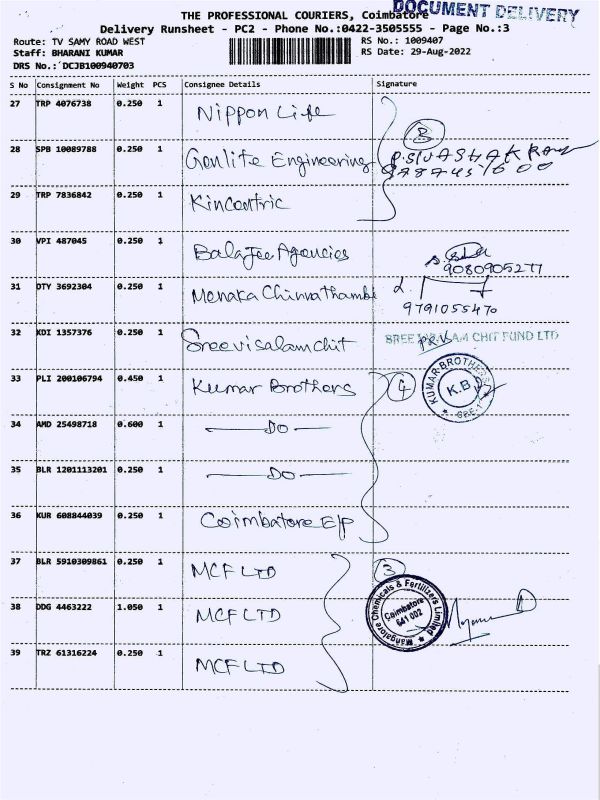 DOCUMENT DELIVERY
THE PROFESSIONAL COURIERS, Coimbatore
Delivery Runsheet - PC2 - Phone No.:0422-3505555 - Page No.:3
Route: TV SAMY ROAD WEST RS No.: 1009407
Staff: BHARANI KUMAR RS Date: 29-Aug-2022
DRS No.: DCJB100940703
S No Consignment No Weight PCS Consignee Details Signature
27 TRP 4076738 0.250 1 Nippon Life
28 SPB 10089788 0.250 1 Genlite Engineering 3
29 TRP 7836842 0.250 1 Kincentric
30 VPI 487045 0.250 1 Balajee Agencies
9080905277
31 DTY 3692304 0.250 1 Menaka Chinnathambi
9791055470
32 KDI 1357376 0.250 1 Sreevisalamchit CHIT FUND LTD
33 PLI 200106794 0.450 1 Kumar Brothers 4 KUMAR BROTHERS K.B
34 AMD 25498718 0.600 1 DO
35 BLR 1201113201 0.250 1 DO
36 KUR 608844039 0.250 1 Coimbatore E/P
37 BLR 5910309861 0.250 1 MCF LTD 3
38 DDG 4463222 1.050 1 MCF LTD Mangalore Chemicals & Fertilizers Limited Coimbatore 641 002
39 TRZ 61316224 0.250 1 MCF LTD